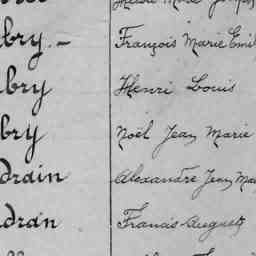 bry – François Marie Emil
bry Henri Louis
bry Noël Jean Marie
drain Alexandre Jean Ma
dran Francis August